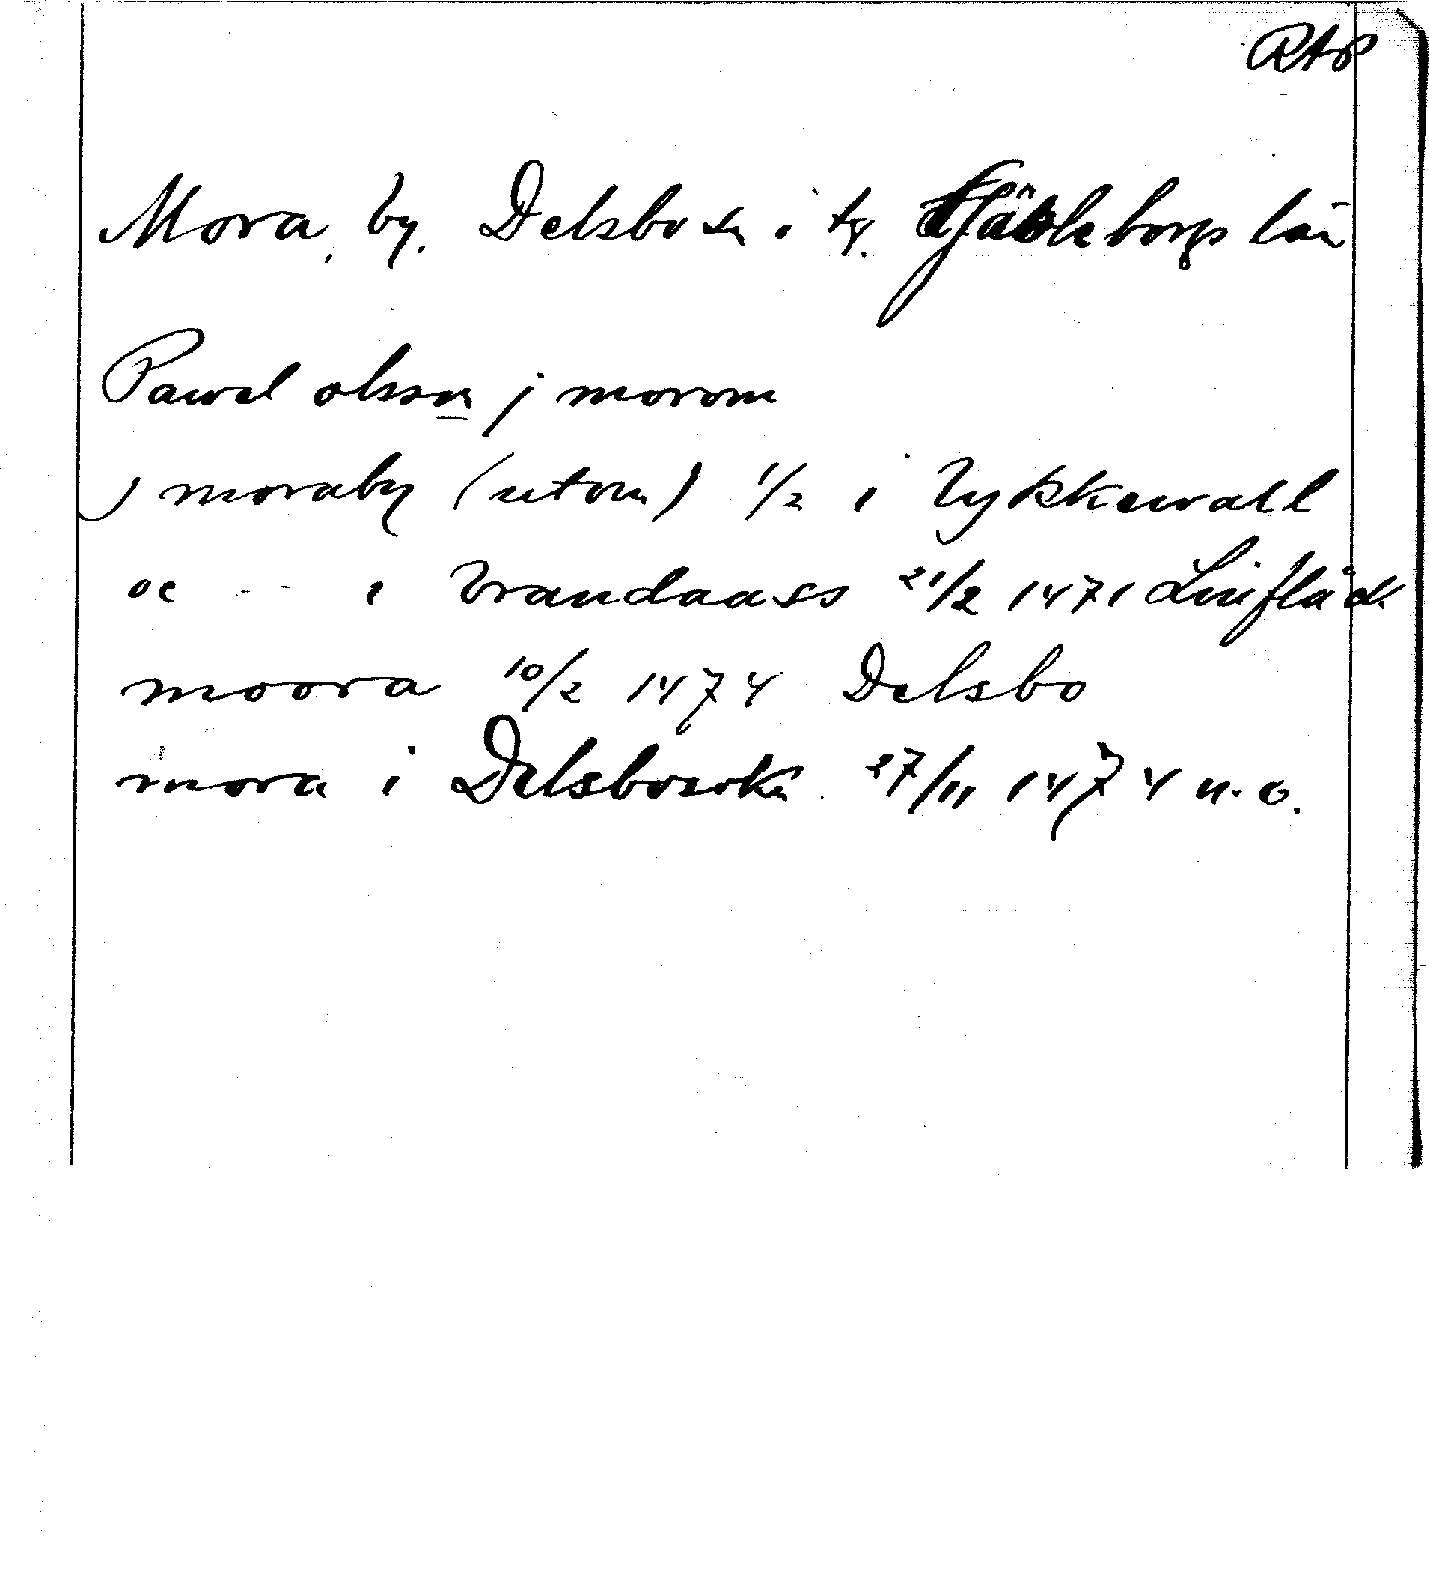 RAP
Mora, by. Delsbo sn i hg. Gävleborgs län
Pawel olsson j morom
j moraby (utom) 1/2 i Lykkewall
oc - - i brandaass 21/2 1471 Linfläck
moora 10/2 1474 Delsbo
mora i Delsbosokn 27/11 1474 n.o.